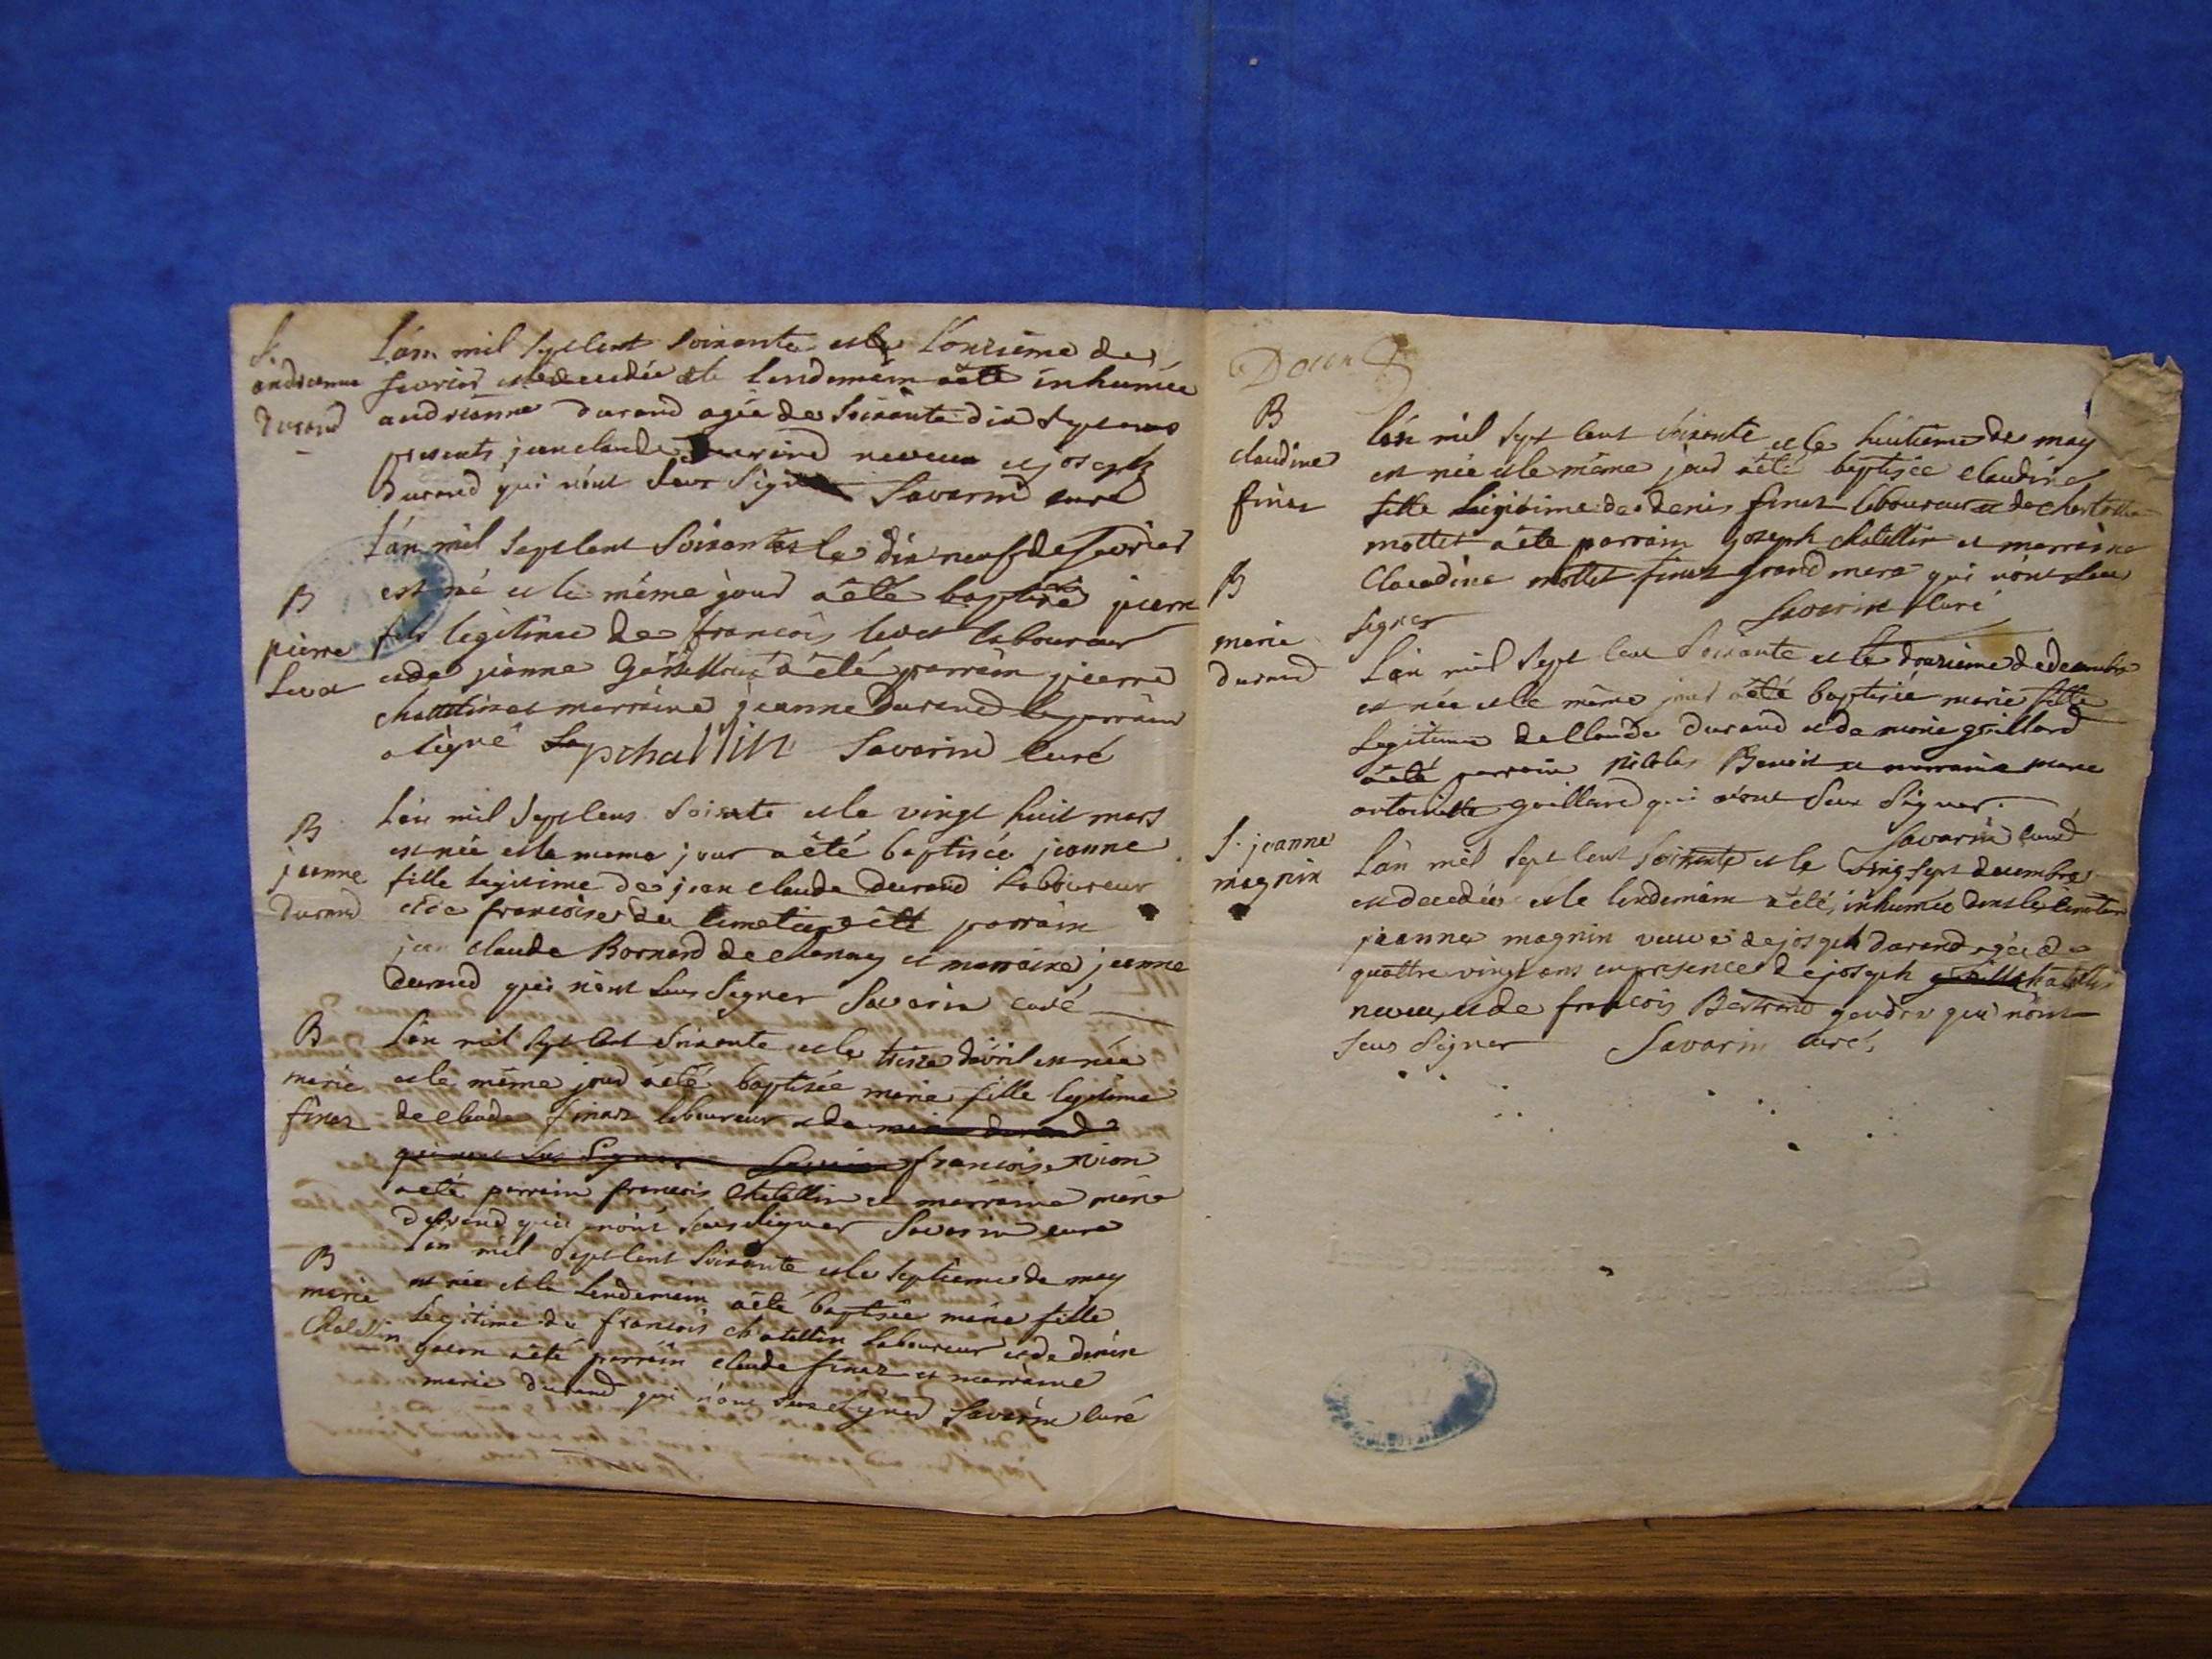 S.
andrienne
durand
L'an mil sept cent soixante et le l'onzieme de
fevrier est decedée et le lendemain a été inhumée
andrienne durand agée de soixante dix sept ans
presents jean claude neveu et joseph
durand qui n'ont sceu signer Savarin curé
B
pierre
Levet
L'an mil sept cent soixante et le dix neuf de fevrier
est né et le même jour a été baptisé pierre
fils legitime de francois levet laboureur
et de jeanne a été parrain pierre
chatellin et marraine jeanne durand le parrain
a signé pchatllin Savarin curé
B
jeanne
durand
L'an mil sept cens soixante et le vingt huit mars
est née et le meme jour a été baptisée jeanne
fille legitime de jean claude durand laboureur
et de francoise du a été parrain
jean claude Bornard de chanay et marraine jeanne
durand qui n'ont sceu signer Savarin curé
B
marie
finaz
L'an mil sept cent soixante et le treize d'avril est née
et le même jour a été baptisée marie fille legitime
de claude finaz laboureur et de marie durand
qui n'ont sceu signer Savarin francoise
a été parrain francois chatellin et marraine marie
durand qui n'ont sceu signer Savarin curé
B
marie
Chatellin
L'an mil sept cent soixante et le septieme de may
est née et le lendemain a été baptisée marie fille
legitime de francois chatellin laboureur et de denise
a été parrain claude finaz et marraine
marie durand qui n'ont sceu signer Savarin curé
B
claudine
finaz
L'an mil sept cent soixante et le huitieme de may
est née et le même jour a été baptisée claudine
fille legitime de denis finaz laboureur et de
mottet a été parrain joseph chatellin et marraine
Claudine mottet finaz grand mere qui n'ont sceu
signer Savarin curé
B
marie
durand
L'an mil sept cent soixante et le douzieme de decembre
est née et le même jour a été baptisée marie fille
legitime de Claude durand et de marie gaillard
a été parrain nicolas Benoit et marraine marie
antoinette gaillard qui n'ont sceu signer.
Savarin curé
S. jeanne
magnin
L'an mil sept cent soixante et le vingt sept decembre
est decedée et le lendemain a été inhumée dans le cimetiere
jeanne magnin veuve de joseph durand agée de
quattre vingt ans en presence de joseph chatellin
neveu et de francois Bertrand gendre qui n'ont
sceu signer Savarin curé